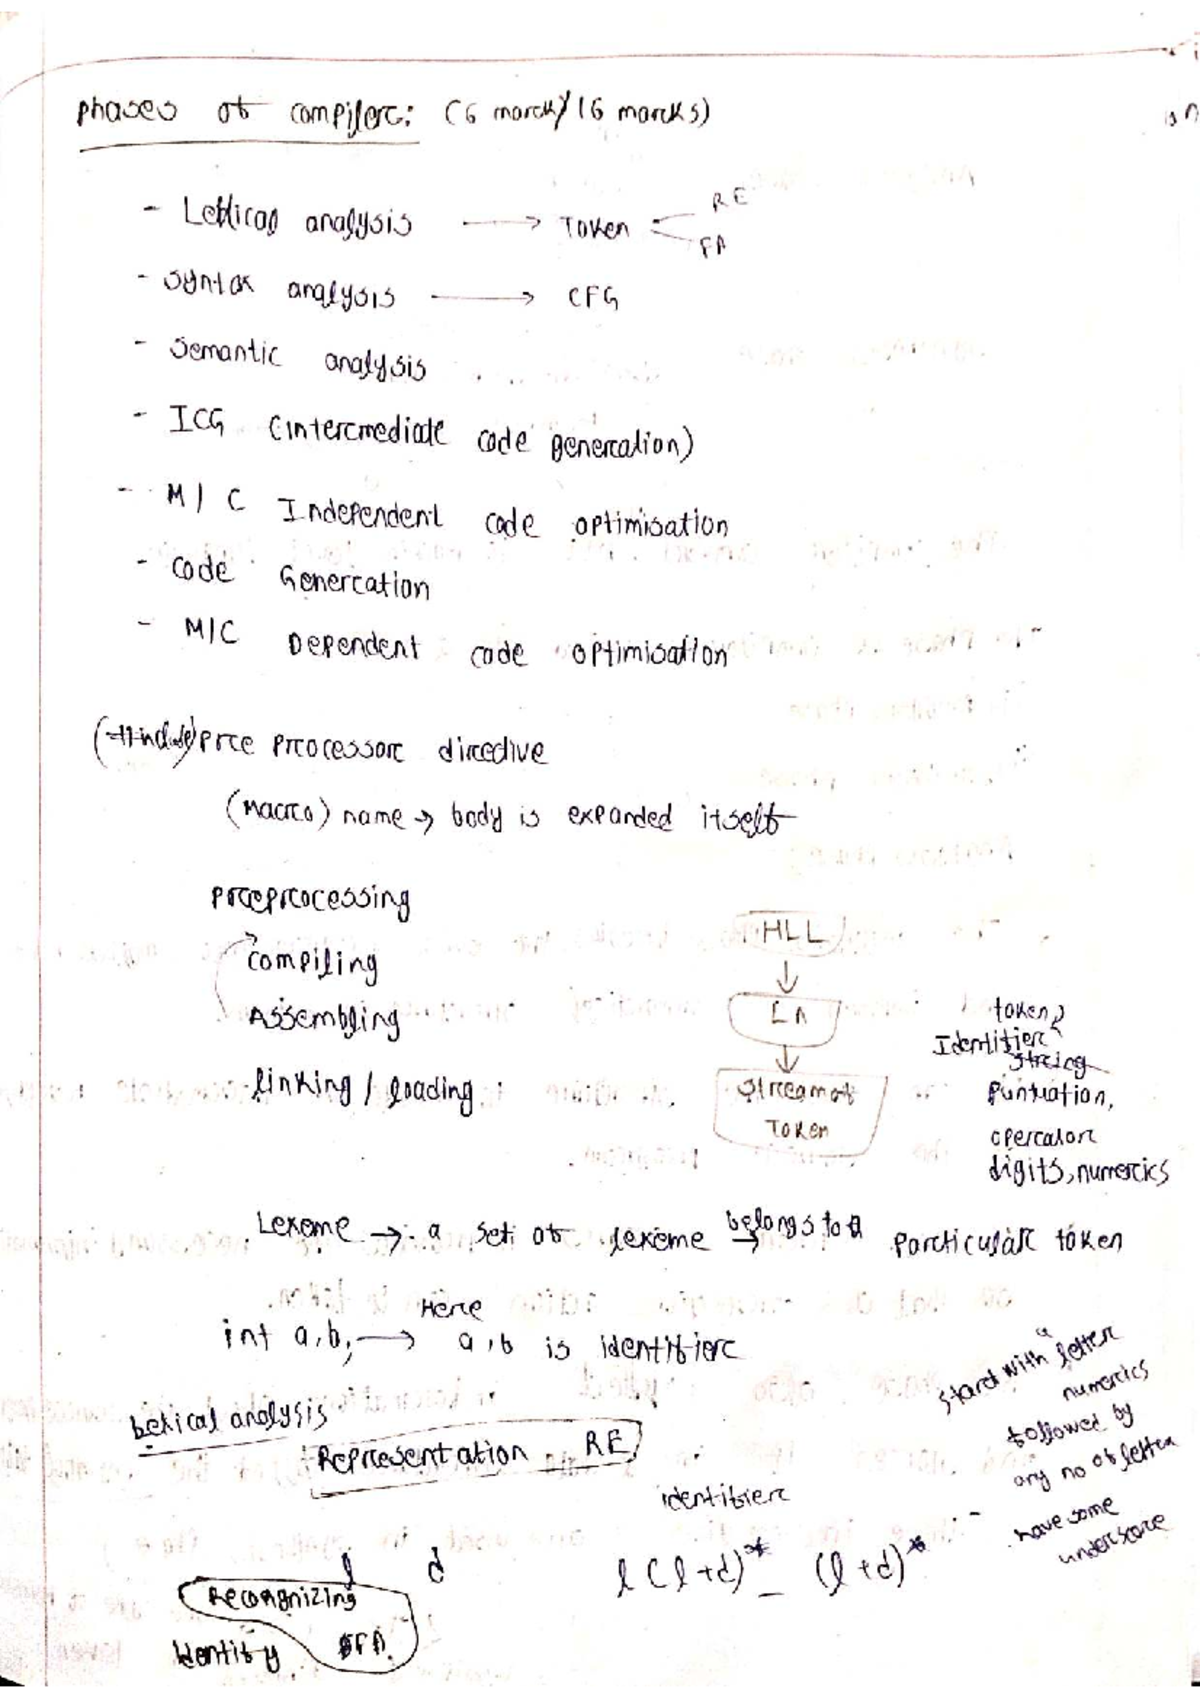 phases of compiler: (6 mark / 16 marks)
- Lexical analysis → Token RE
FA
- Syntax analysis → CFG
- Semantic analysis
- ICG (intermediate code generation)
- M/C Independent code optimisation
- Code Generation
- M/C Dependent code optimisation
(#include) Pre Processor directive
(Macro) name → body is expanded itself
Preprocessing
compiling
Assembling
linking / loading
HLL
LA
Stream of
Token
token
Identifier
string
Puntuation,
operator
digits, numerics
Lexeme → a set of lexeme → belongs to a particular token
Here
int a, b; → a, b is identifier
Lexical analysis
Representation RE
identifier
start with a letter
numerics
followed by
any no of letter
have some
underscore
l d
l (l+d)* _ (l+d)*
Recognizing
Identify FA